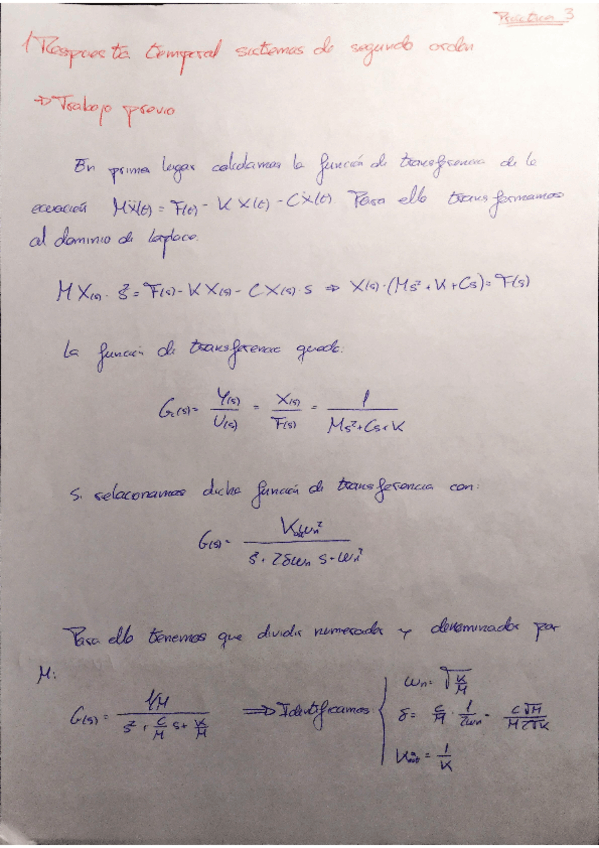 Práctica 3
1 Respuesta temporal sistemas de segundo orden
⇒ Trabajo previo
En primer lugar calculamos la función de transferencia de la
ecuación MẌ(t) = F(t) - K X(t) - CẊ(t) Para ello transformamos
al dominio de Laplace.
M X(s) · s² = F(s) - K X(s) - C X(s) · s ⇒ X(s) · (Ms² + K + Cs) = F(s)
La función de transferencia queda:
G(s) = Y(s)/U(s) = X(s)/F(s) = 1/(Ms² + Cs + K)
Si relacionamos dicha función de transferencia con:
G(s) = K ωn² / (s² + 2δωn s + ωn²)
Para ello tenemos que dividir numerador y denominador por
M:
G(s) = (1/M) / (s² + C/M s + K/M) ⇒ Identificamos { ωn = √(K/M)
δ = C/M · 1/(2ωn) = C√M / (M2√K)
K = 1/K